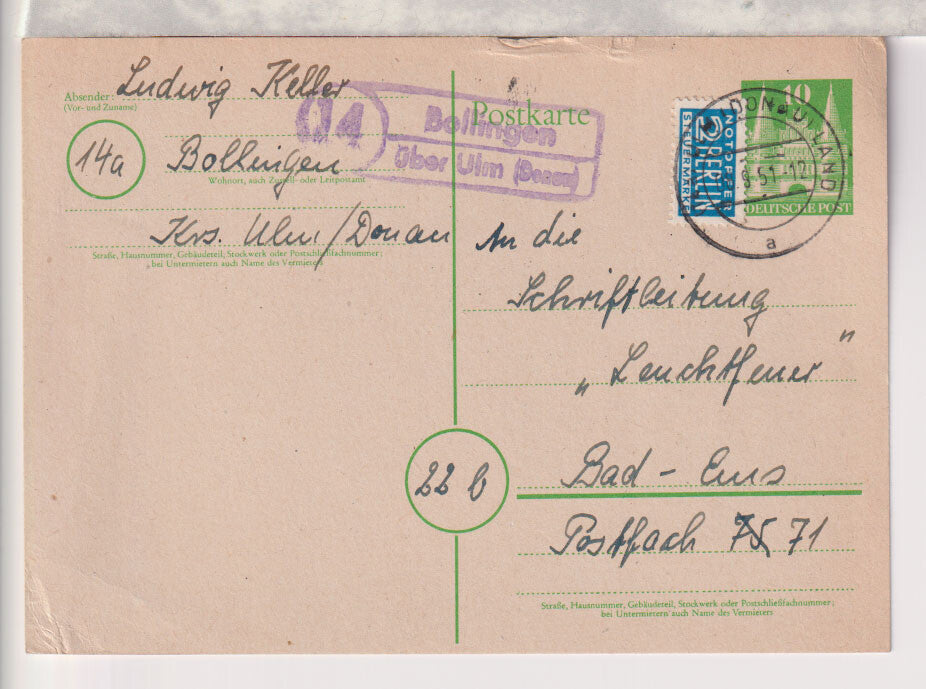 Absender
(Vor- und Zuname)
Ludwig Keller
14a
Bollingen
Wohnort, auch Zustell- oder Leitpostamt
Krs. Ulm/Donau
Straße, Hausnummer, Gebäudeteil, Stockwerk oder Postschließfachnummer;
bei Untermietern auch Name des Vermieters
14
Bollingen
über Ulm (Donau)
Postkarte
NOTOPFER
2 BERLIN
STEUERMARKE
10
DEUTSCHE POST
(DONAU) LAND
51.-12
a
An die
Schriftleitung
„Leuchtfeuer"
22 b
Bad-Ems
Postfach 71
Straße, Hausnummer, Gebäudeteil, Stockwerk oder Postschließfachnummer;
bei Untermietern auch Name des Vermieters